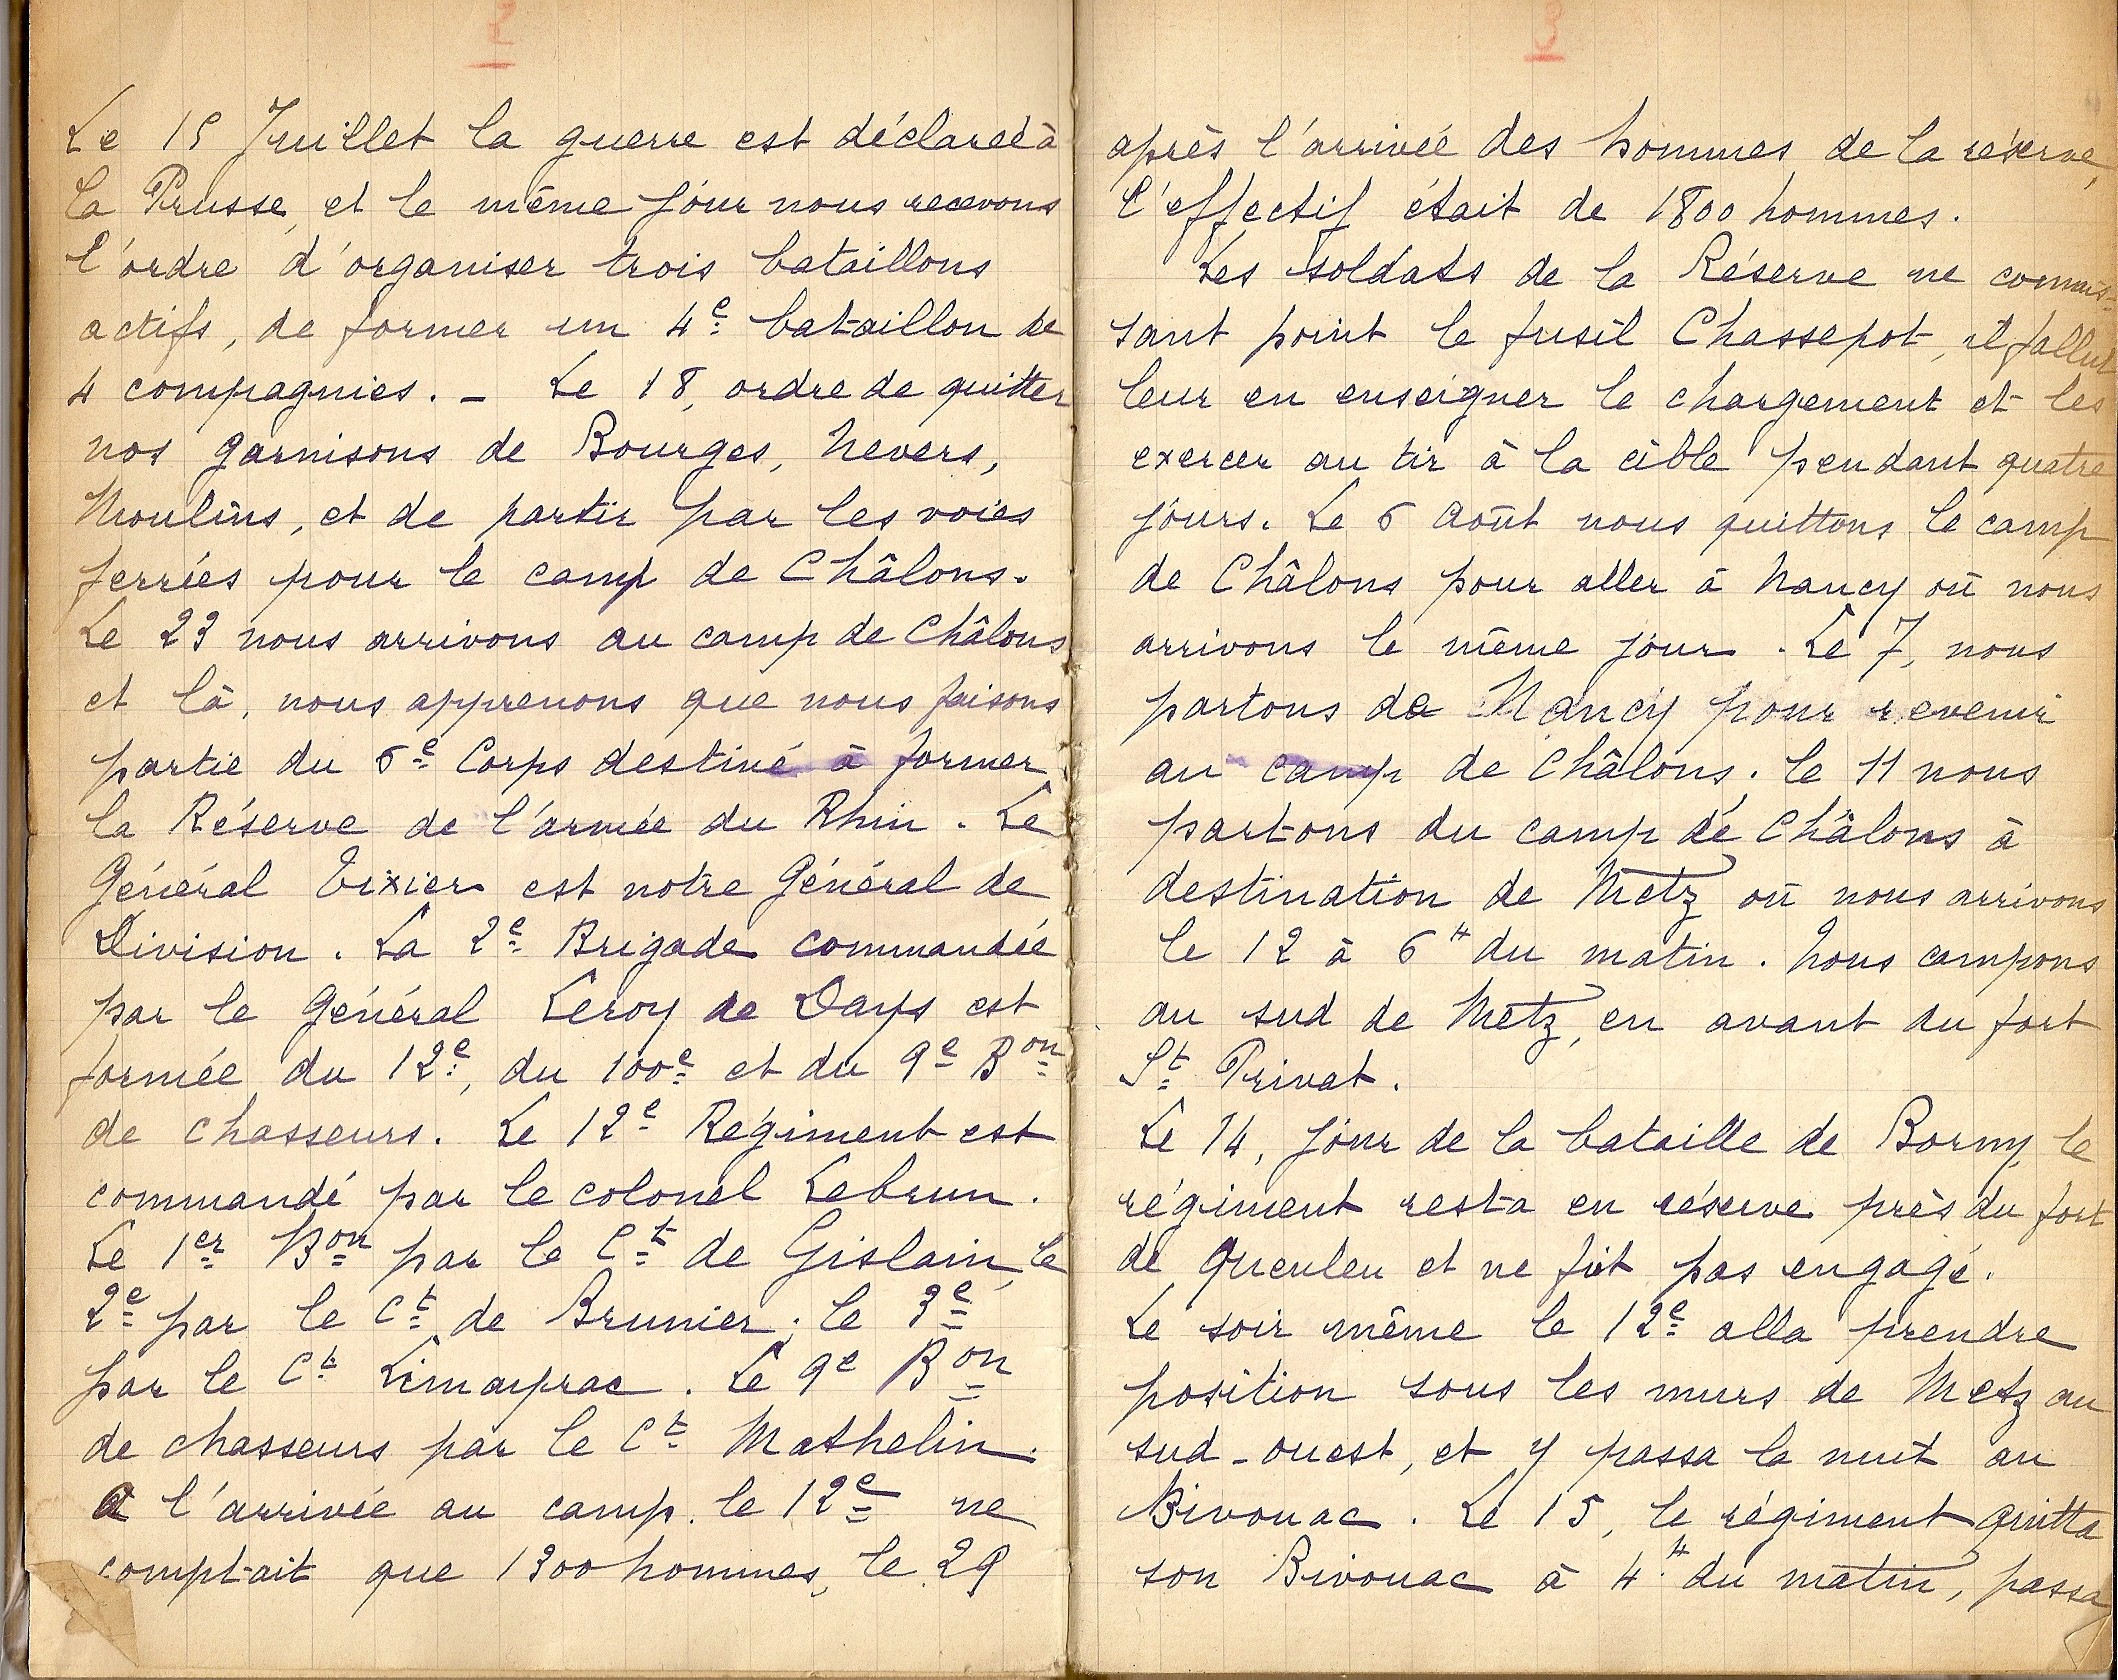 2
Le 15 Juillet la guerre est déclareé à
la Prusse, et le même jour nous recevons
l'ordre d'organiser trois bataillons
actifs, de former un 4e bataillon de
4 compagnies. - Le 18, ordre de quitter
nos garnisons de Bourges, Nevers,
Moulins, et de partir par les voies
ferrées pour le camp de Châlons.
Le 23 nous arrivons au camp de Châlons
et là, nous apprenons que nous faisons
partie du 6e Corps destiné à former
la Réserve de l'armée du Rhin. Le
Général Tixier est notre Général de
Division. La 2e Brigade commandée
par le Général Leroy de Days est
formée du 12e, du 100e et du 9e Bon
de chasseurs. Le 12e Régiment est
commandé par le colonel Lebrun.
Le 1er Bon par le Ct de Gislain, le
2e par le Ct de Brunier, le 3e
par le Ct Limayrac. Le 9e Bon
de chasseurs par le Ct Mathelin.
A l'arrivée au camp, le 12e ne
comptait que 1300 hommes, le 29
3
après l'arrivée des hommes de la réserve,
l'effectif était de 1800 hommes.
Les soldats de la Réserve ne connais-
sant point le fusil Chassepot, il fallut
leur en enseigner le chargement et les
exercer au tir à la cible pendant quatre
jours. Le 6 Août nous quittons le camp
de Châlons pour aller à Nancy où nous
arrivons le même jour. Le 7, nous
partons de Nancy pour revenir
au camp de Châlons. le 11 nous
partons du camp de Châlons à
destination de Metz où nous arrivons
le 12 à 6 H du matin. Nous campons
au sud de Metz, en avant du fort
St Privat.
Le 14, jour de la bataille de Borny, le
régiment resta en réserve près du fort
de Queuleu et ne fût pas engagé.
Le soir même le 12e alla prendre
position sous les murs de Metz au
sud-ouest, et y passa la nuit au
Bivouac. Le 15, le régiment quitta
son Bivouac à 4 H du matin, passa